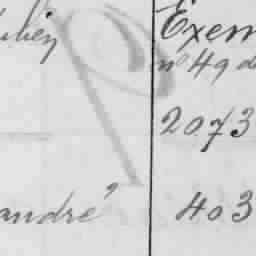 Exem
n° 49 d
2073
andré 403